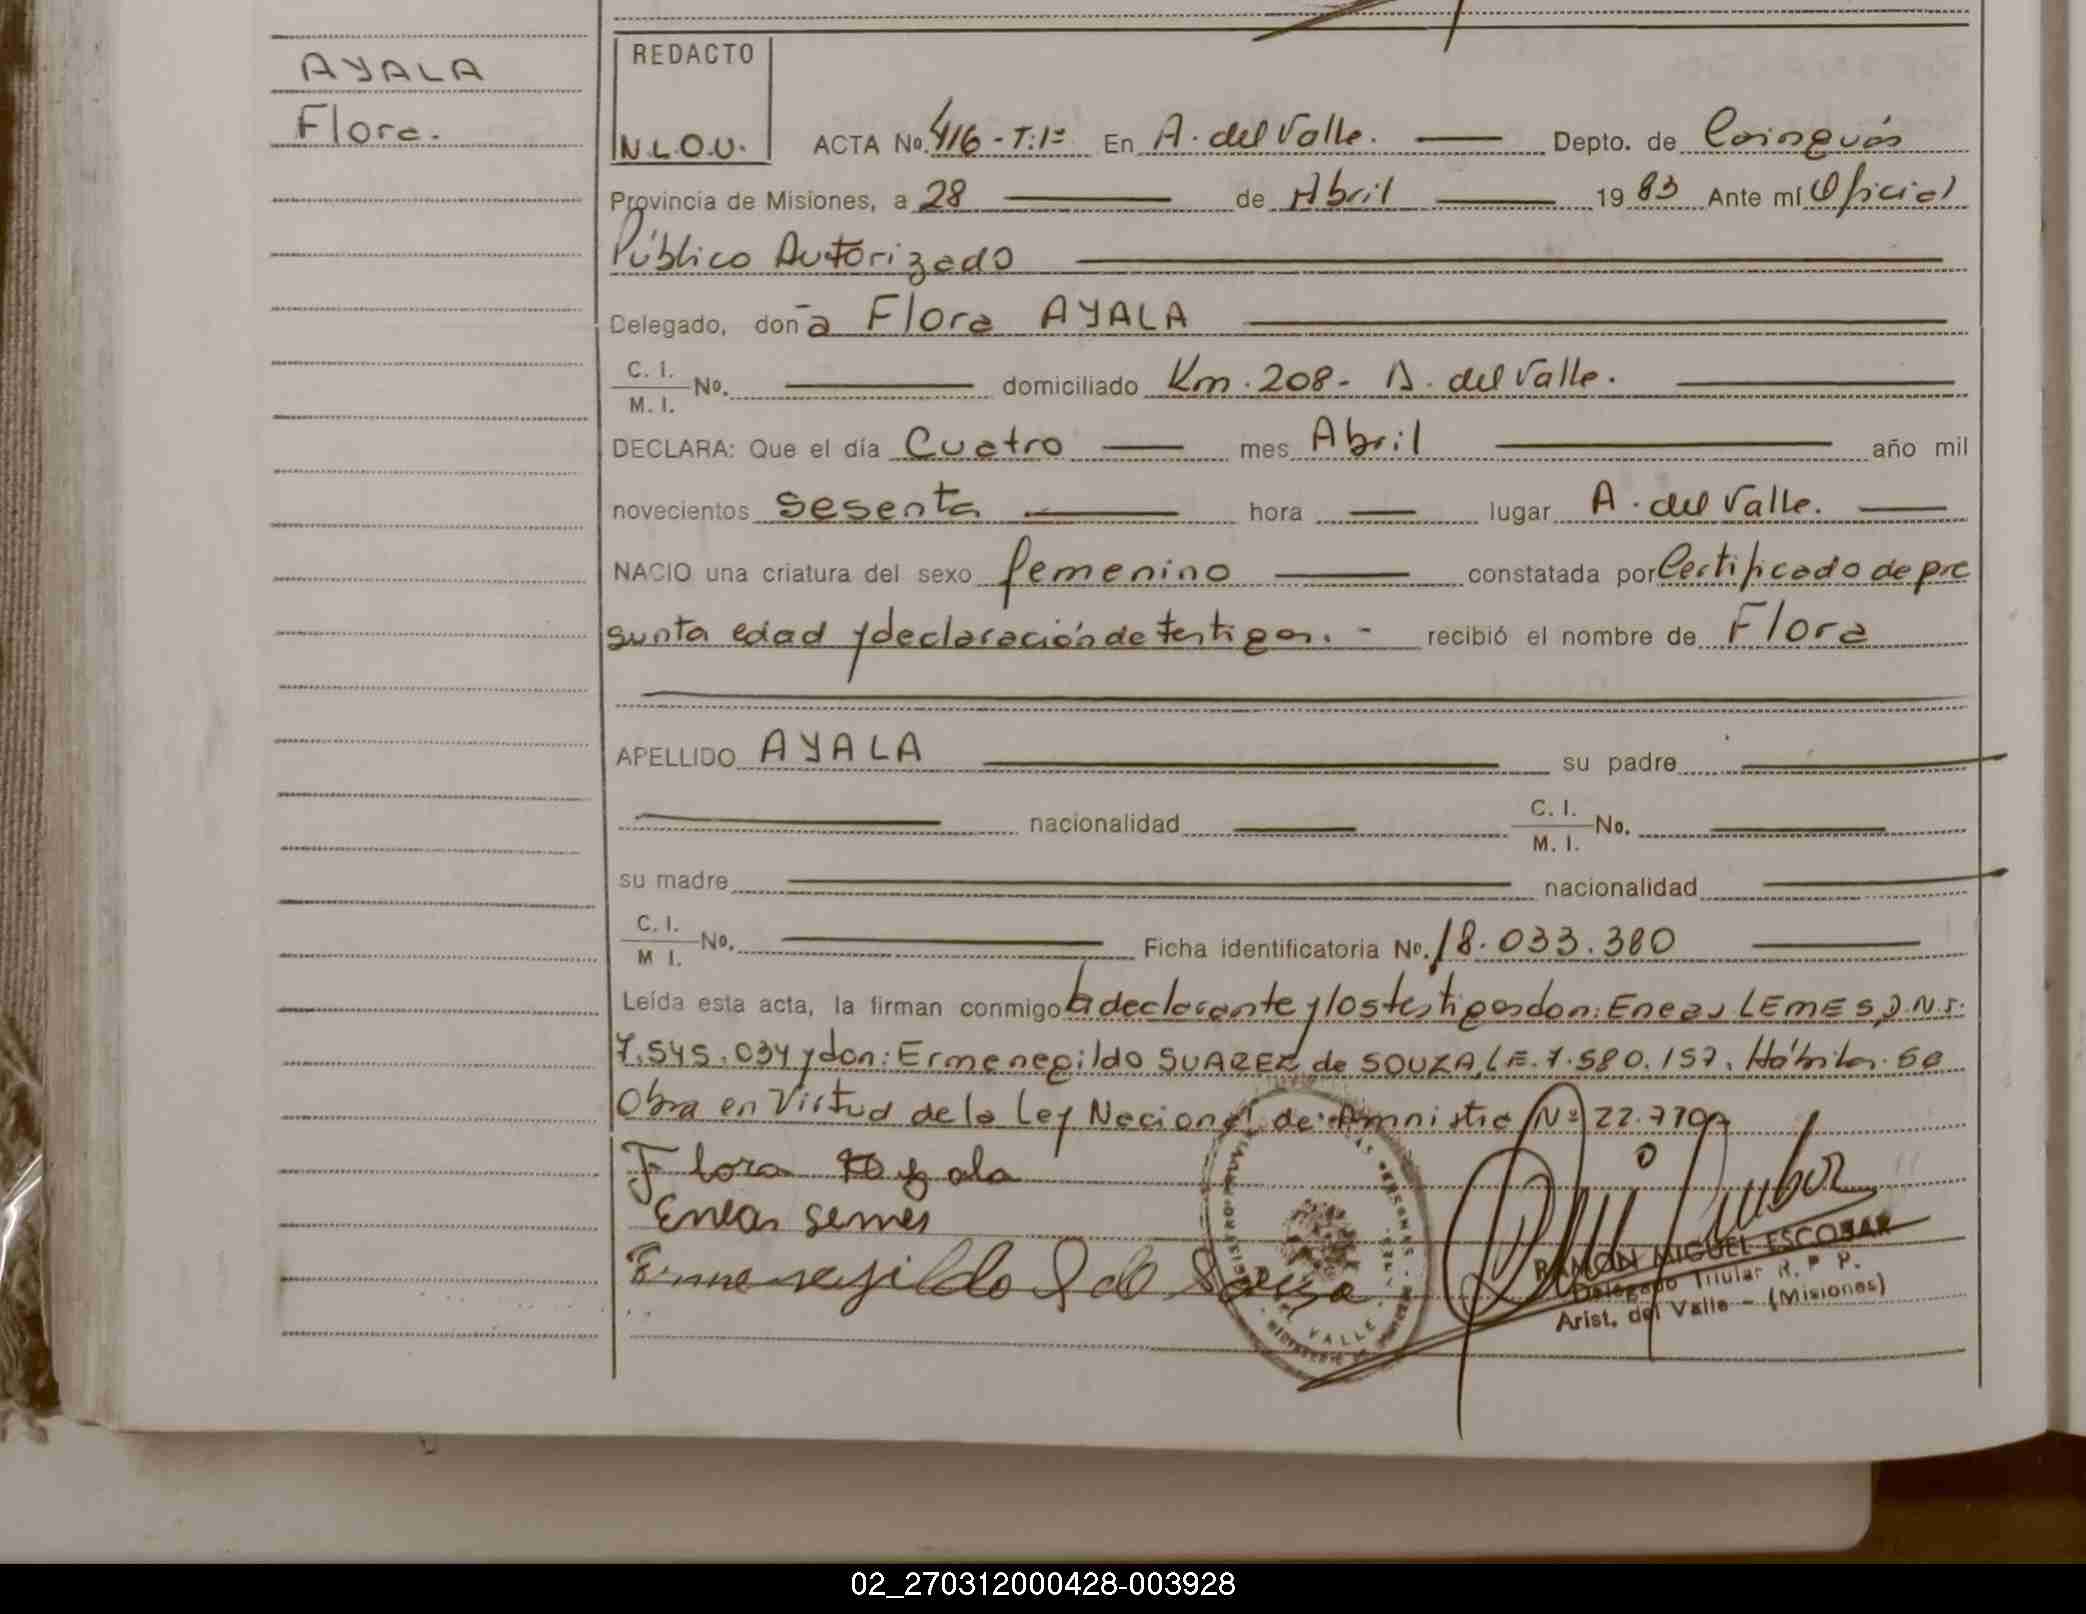 AYALA
Flora.
REDACTO
N.L.O.U.
ACTA No. 416 - T:1º En A. del Valle. Depto. de Cainguás
Provincia de Misiones, a 28 de Abril 1983 Ante mí Oficial
Público Autorizado
Delegado, doña Flora AYALA
C. I.
M. I. No. domiciliado Km. 208 - A. del Valle.
DECLARA: Que el día Cuatro mes Abril año mil
novecientos sesenta hora lugar A. del Valle.
NACIO una criatura del sexo femenino constatada por Certificado de pre
sunta edad y declaración de testigos. - recibió el nombre de Flora
APELLIDO AYALA su padre
nacionalidad C. I.
M. I. No.
su madre nacionalidad
C. I.
M I. No. Ficha identificatoria No. 18.033.380
Leída esta acta, la firman conmigo la declarante y los testigos don: Eneas LEMES, D.N.I.
7.545.034 y don: Ermenegildo SUAREZ de SOUZA, L.E. 7.580.157. Hábiles. Se
Obra en Virtud de la Ley Nacional de Amnistia Nº 22.770
Flora Ayala
Eneas Lemes
Ermenegildo S de Souza
RAMON MIGUEL ESCOBAR
Delegado Titular R. P. P.
Arist. del Valle - (Misiones)
02_270312000428-003928